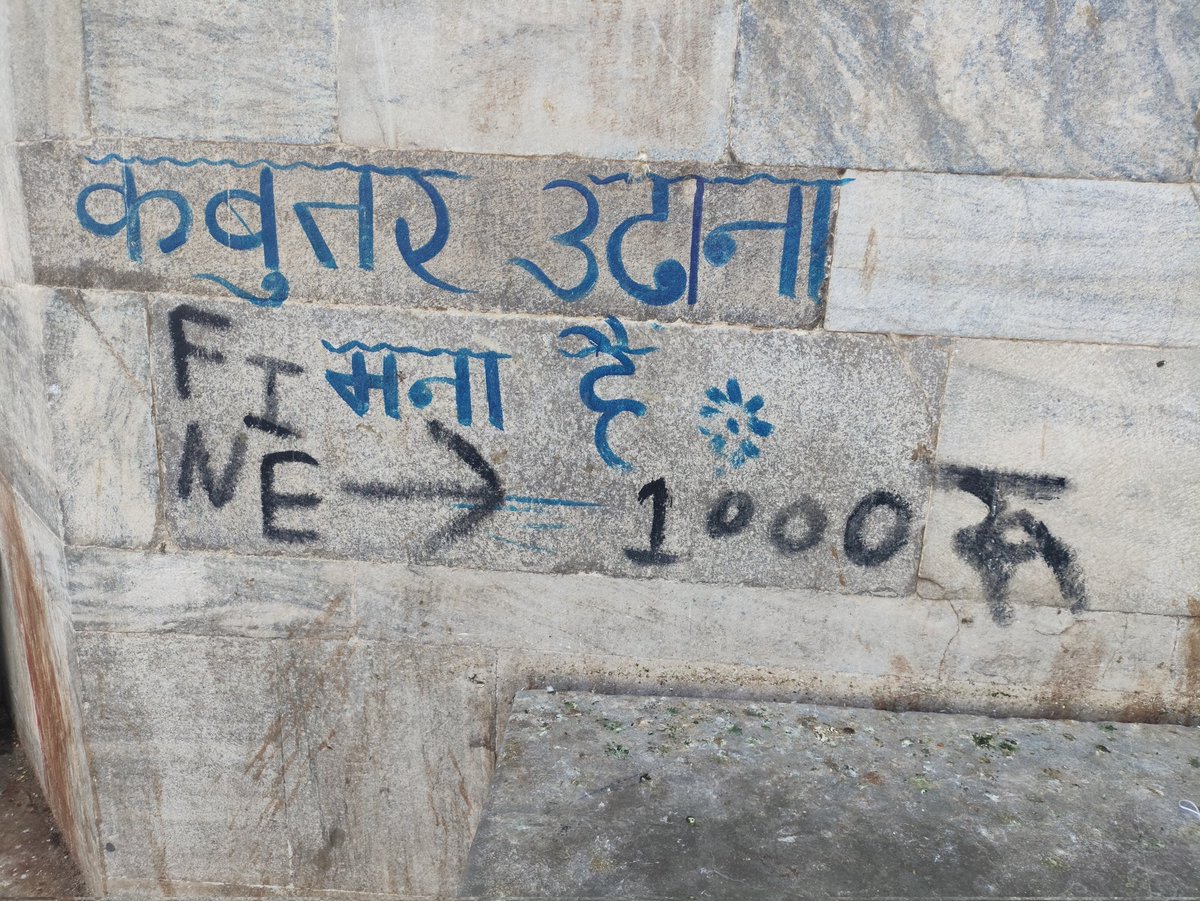 कबुतर उढाना
मना है
FINE → 1000 रू